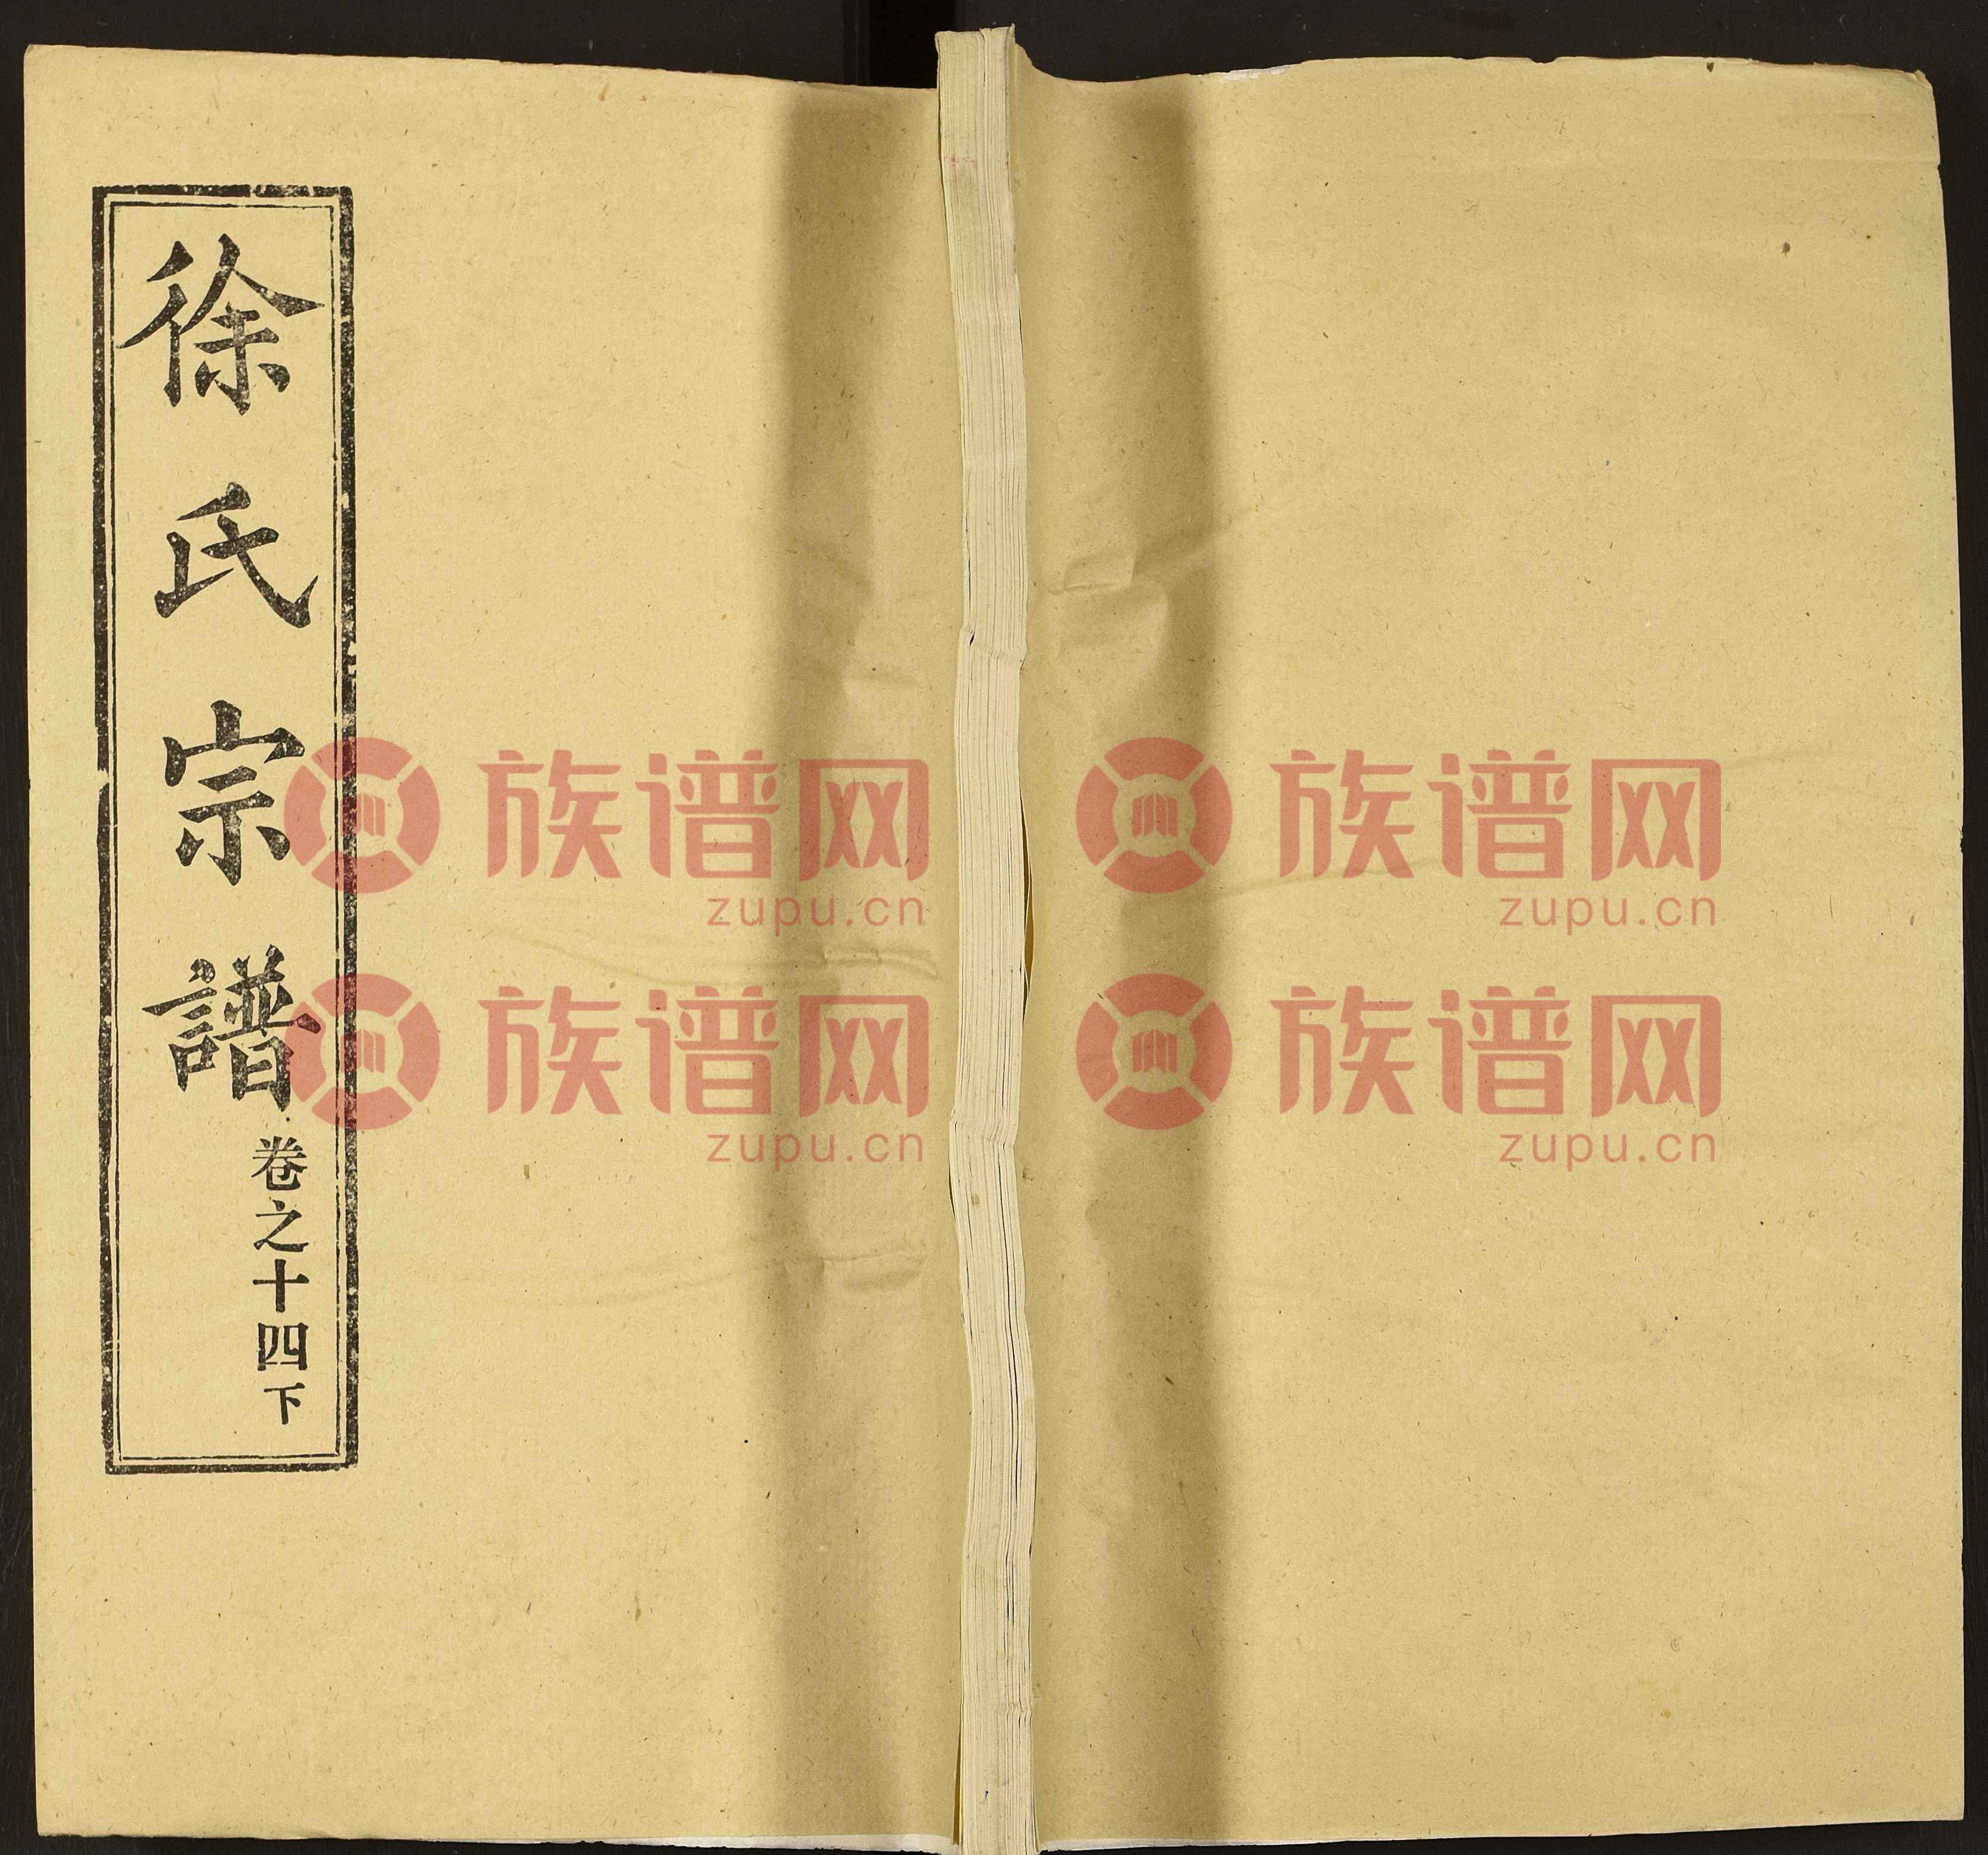 徐氏宗譜
卷之十四下
族谱网
zupu.cn
族谱网
zupu.cn
族谱网
zupu.cn
族谱网
zupu.cn